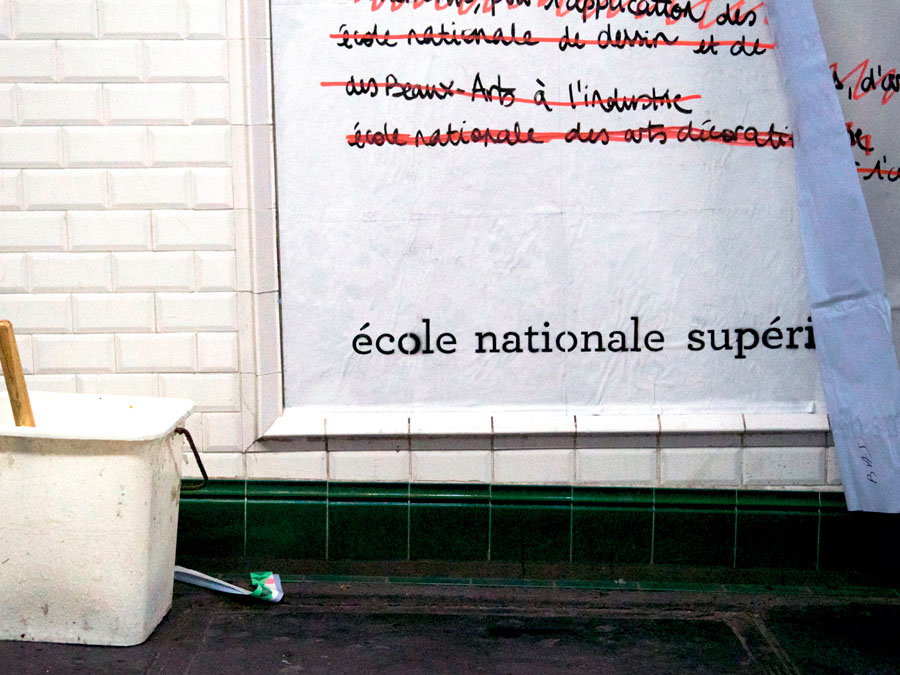 pour l'application des
école nationale de dessin et de
des Beaux-Arts à l'industrie
école nationale des arts décorati
école nationale supéri